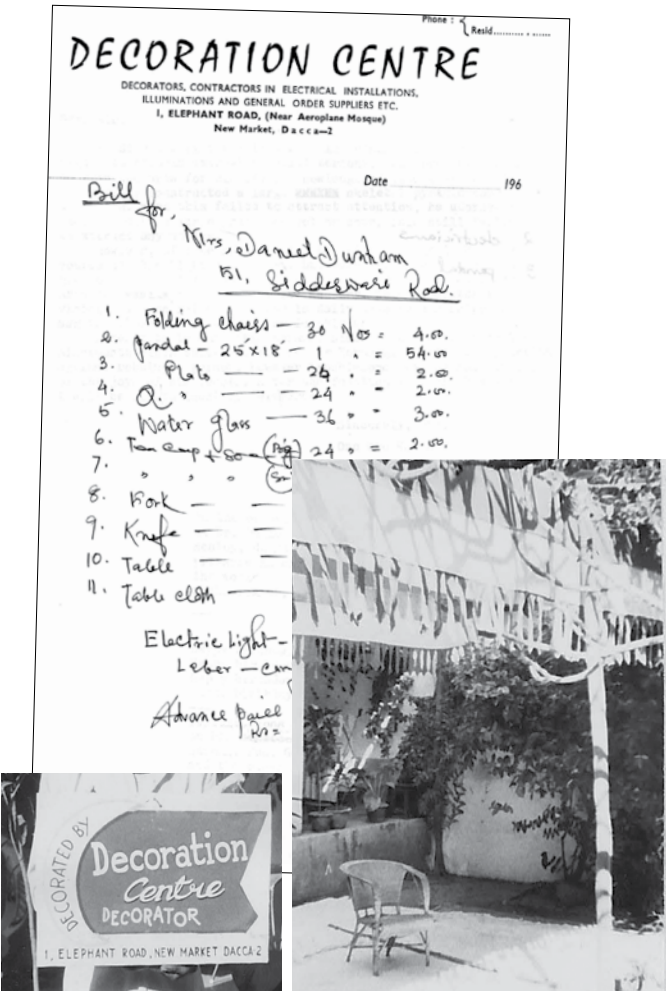 Phone :
Resid.
DECORATION CENTRE
DECORATORS, CONTRACTORS IN ELECTRICAL INSTALLATIONS,
ILLUMINATIONS AND GENERAL ORDER SUPPLIERS ETC.
1, ELEPHANT ROAD, (Near Aeroplane Mosque)
New Market, Dacca—2
Date 196
Bill for,
Mrs, Daniel Dunham
151, Siddeswari Road.
1. Folding chairs — 30 Nos = 4.00.
2. Pandal — 25'x18' — 1 " = 54.00
3. Plate — 24 " = 2.00.
4. Q. " — 24 " = 2.00.
5. Water glass — 36 " = 3.00.
6. Big 24 " = 2.00.
7. " " "
8. Fork — —
9. Knife — —
10. Table — —
11. Table cloth —
Electric light -
Leber —
Advance paid
Rs=
DECORATED BY
Decoration
Centre
DECORATOR
1, ELEPHANT ROAD, NEW MARKET DACCA-2